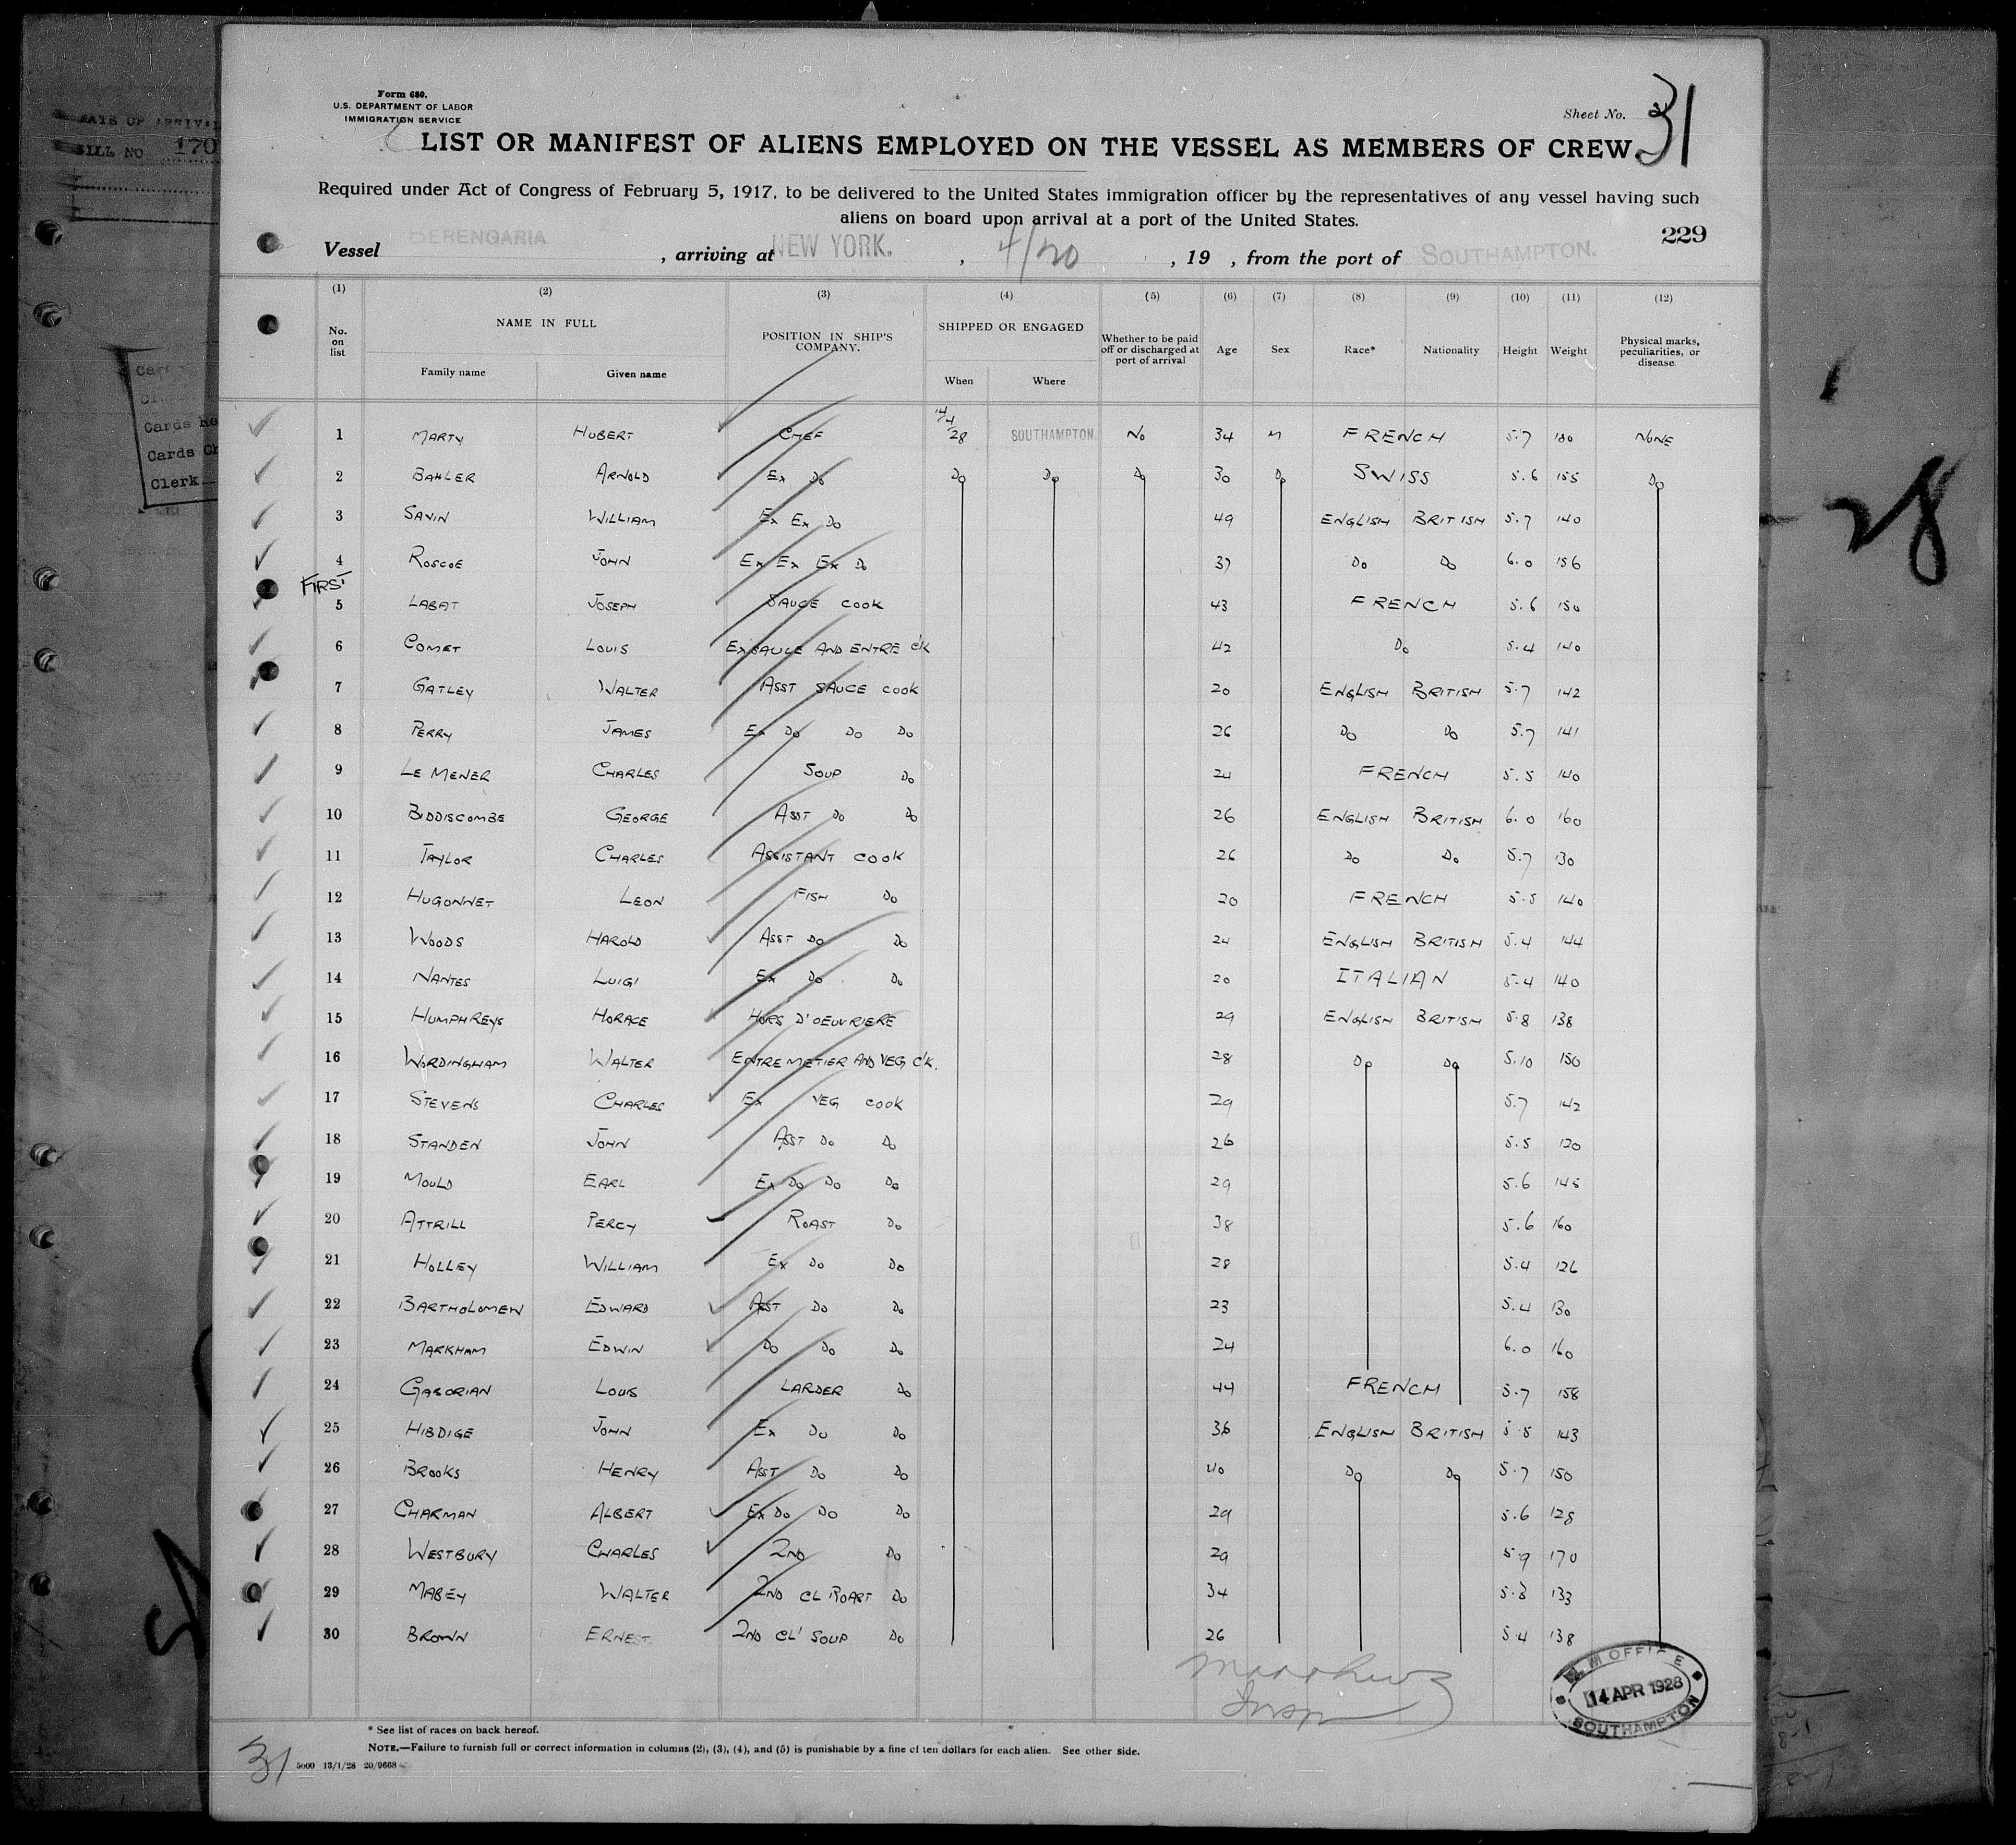 DATE OF ARRIVAL
BILL NO 170
Cards Re
Cards Ch
Clerk
Form 680.
U.S. DEPARTMENT OF LABOR
IMMIGRATION SERVICE
Sheet No. 31
LIST OR MANIFEST OF ALIENS EMPLOYED ON THE VESSEL AS MEMBERS OF CREW.
Required under Act of Congress of February 5, 1917, to be delivered to the United States immigration officer by the representatives of any vessel having such
aliens on board upon arrival at a port of the United States.
229
Vessel BERENGARIA , arriving at NEW YORK. , 4/20 , 19 , from the port of SOUTHAMPTON.
(1) (2) (3) (4) (5) (6) (7) (8) (9) (10) (11) (12)
No. on list NAME IN FULL POSITION IN SHIP'S COMPANY. SHIPPED OR ENGAGED Whether to be paid off or discharged at port of arrival Age Sex Race* Nationality Height Weight Physical marks, peculiarities, or disease.
Family name Given name When Where
1 MARTY HUBERT CHEF 14/4/28 SOUTHAMPTON. NO 34 M FRENCH 5.7 180 NONE
2 BAHLER ARNOLD EX DO DO DO DO 30 DO SWISS 5.6 155 DO
3 SAVIN WILLIAM EX EX DO 49 ENGLISH BRITISH 5.7 140
4 ROSCOE JOHN EX EX EX DO 37 DO DO 6.0 156
FIRST
5 LABAT JOSEPH SAUCE COOK 43 FRENCH 5.6 150
6 COMET LOUIS EX SAUCE AND ENTRE C'K 42 DO 5.4 140
7 GATLEY WALTER ASST SAUCE COOK 20 ENGLISH BRITISH 5.7 142
8 PERRY JAMES EX DO DO DO 26 DO DO 5.7 141
9 LE MENER CHARLES SOUP DO 24 FRENCH 5.5 140
10 BIDDISCOMBE GEORGE ASST DO DO 26 ENGLISH BRITISH 6.0 160
11 TAYLOR CHARLES ASSISTANT COOK 26 DO DO 5.7 130
12 HUGONNET LEON FISH DO 20 FRENCH 5.5 140
13 WOODS HAROLD ASST DO DO 24 ENGLISH BRITISH 5.4 144
14 NANTES LUIGI EX DO DO 20 ITALIAN 5.4 140
15 HUMPHREYS HORACE HORS D'OEUVRIERE 29 ENGLISH BRITISH 5.8 138
16 WORDINGHAM WALTER ENTREMETIER AND VEG C'K. 28 DO DO 5.10 150
17 STEVENS CHARLES EX VEG COOK 29 5.7 142
18 STANDEN JOHN ASST DO DO 26 5.5 120
19 MOULD EARL EX DO DO DO 29 5.6 145
20 ATTRILL PERCY ROAST DO 38 5.6 160
21 HOLLEY WILLIAM EX DO DO 28 5.4 126
22 BARTHOLOMEW EDWARD ASST DO DO 23 5.4 130
23 MARKHAM EDWIN DO DO DO 24 6.0 160
24 GABORIAN LOUIS LARDER DO 44 FRENCH 5.7 158
25 HIBDIGE JOHN EX DO DO 36 ENGLISH BRITISH 5.5 143
26 BROOKS HENRY ASST DO DO 40 DO DO 5.7 150
27 CHARMAN ALBERT EX DO DO DO 29 5.6 128
28 WESTBURY CHARLES 2ND DO 29 5.9 170
29 MABEY WALTER 2ND CL ROAST DO 34 5.3 133
30 BROWN ERNEST. 2ND CL' SOUP DO 26 5.4 138
Matthews
Insp
M OFFICE
14 APR 1928
SOUTHAMPTON
* See list of races on back hereof.
NOTE.—Failure to furnish full or correct information in columns (2), (3), (4), and (5) is punishable by a fine of ten dollars for each alien. See other side.
31 5000 13/1/28 20/9668
28